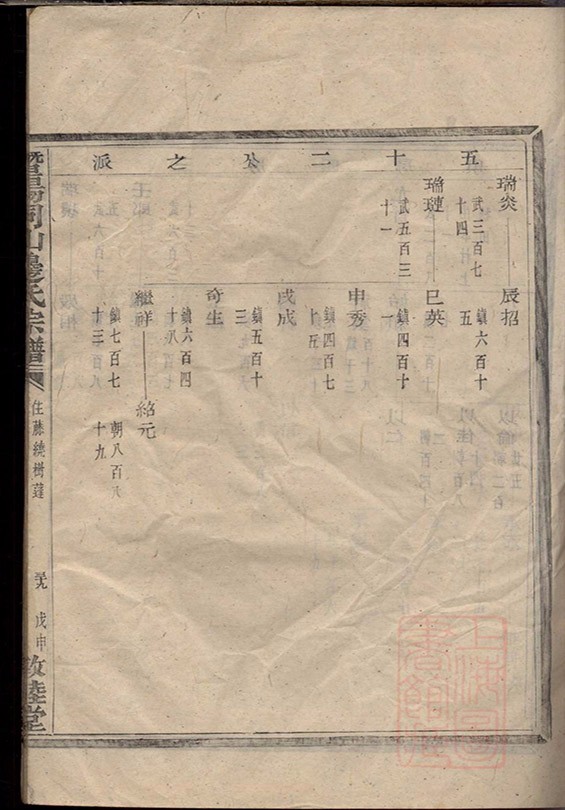 五十二公之派
瑞炎
武三百七
十四
辰招
鎮六百十
五
瑞璉
武五百三
十一
巳英
鎮四百十
一
申秀
鎮四百七
十五
戌成
鎮五百十
三
奇生
鎮六百四
十八
繼祥
鎮七百七
十三
紹元
朝八百八
十九
暨陽同山邊氏宗譜
住藤繞樹蓬
戊申
敦睦堂